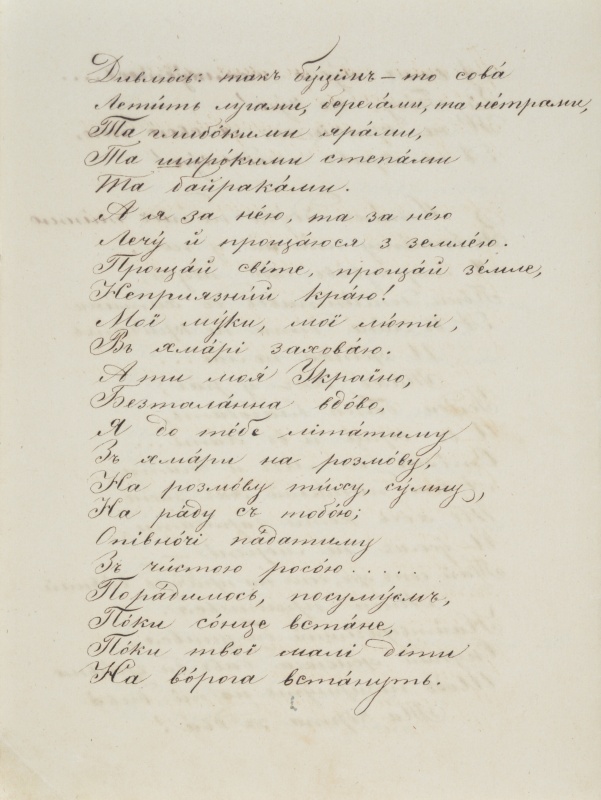 Дивлю́сь: такъ бу́цімъ – то сова́
Лети́ть лугами, берега́ми, та не́трами,
Та глибо́кими яра́ми,
Та широ́кими степа́ми
Та байрака́ми.
А я за не́ю, та за не́ю
Лечу́ й проща́юся з земле́ю.
Проща́й сві́те, проща́й зе́мле,
Неприязний кра́ю!
Мої му́ки, мої лю́ті,
Въ хма́рі захова́ю.
А ти моя́ Украіно,
Безтала́нна вдо́во,
Я до те́бе літа́тиму
Зъ хма́ри на розмо́ву,
На розмо́ву ти́ху, су́мну,
На ра́ду съ тобо́ю;
Опівно́чі па́датиму
Зъ чи́стою росо́ю.....
Пора́димось, посуму́емъ,
По́ки со́нце вста́не,
По́ки твоі малі діти
На во́рога вста́нуть.